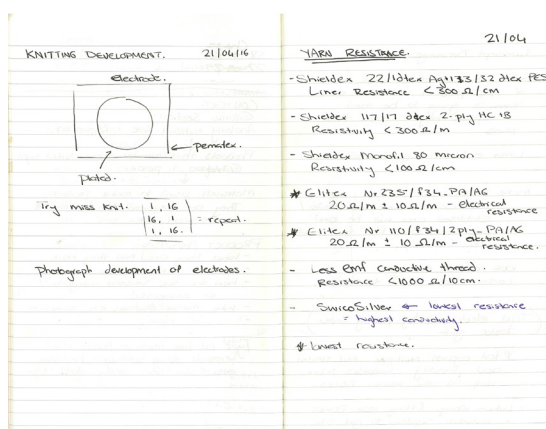 KNITTING DEVELOPMENT. 21/04/16
electrode.
pematex.
plated.
Try miss knit. 1, 16
16, 1 = repeat.
1, 16.
Photograph development of electrodes.
21/04
YARN RESISTANCE.
- Shieldex 22/1dtex Ag+133/32 dtex PES
Liner Resistance < 300 Ω/cm
- Shieldex 117/17 dtex 2-ply HC +B
Resistivity < 300 Ω/m
- Shieldex Monofil 80 micron
Resistivity < 100 Ω/cm
* Elitex Nr 235/f34_PA/AG
20 Ω/m ± 10 Ω/m - electrical
resistance
* Elitex Nr 110/f34/2ply_PA/AG
20 Ω/m ± 10 Ω/m - electrical
resistance.
- Less EMF conductive thread.
Resistance < 1000 Ω/10cm.
- SwicoSilver ← lowest resistance
= highest conductivity.
* lowest resistance.